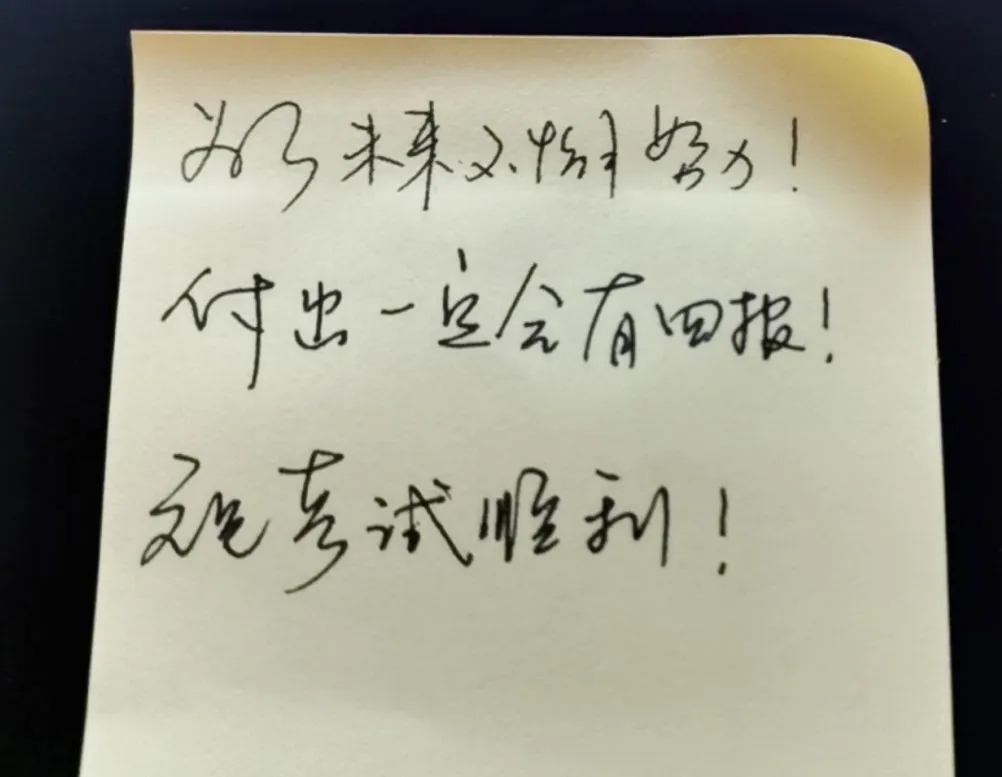 为了未来不懈努力!
付出一定会有回报!
祝考试顺利!